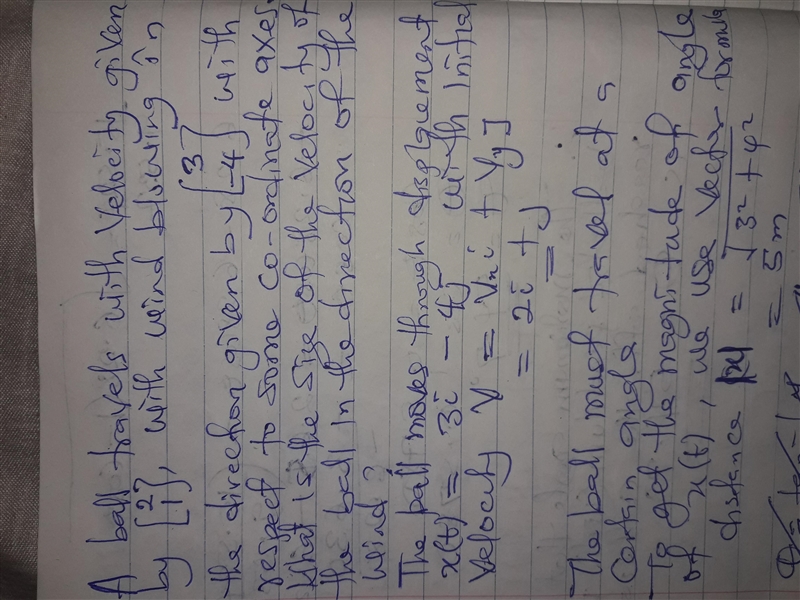 A ball travels with velocity given
by [2 1], with wind blowing in
the direction given by [3 -4] with
respect to some co-ordinate axes.
What is the size of the velocity of
the ball in the direction of the
wind?
The ball moves through displacement
x(t) = 3i - 4j with initial
velocity v = Vxi + Vyj
= 2i + y
=
The ball must travel at a
certain angle
To get the magnitude of angle
of x(t), we use vector formula
distance |x| = √3² + 4²
= 5m